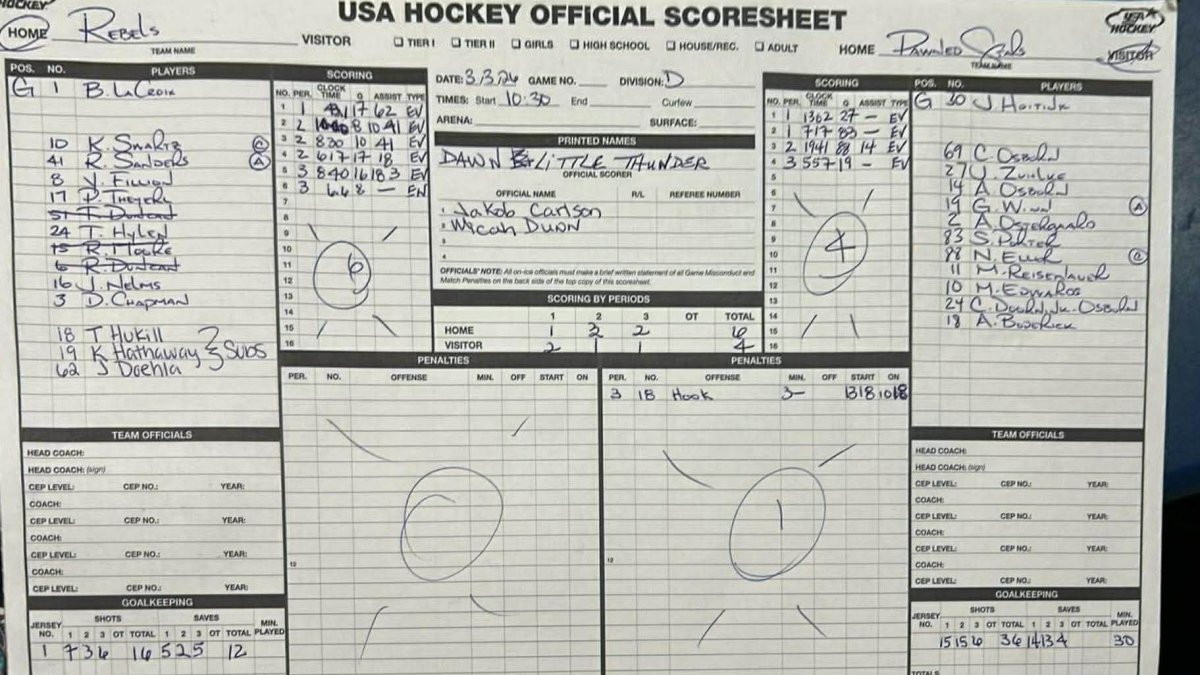 HOCKEY
USA HOCKEY OFFICIAL SCORESHEET
USA HOCKEY
HOME Rebels VISITOR ☐ TIER I ☐ TIER II ☐ GIRLS ☐ HIGH SCHOOL ☐ HOUSE/REC. ☐ ADULT HOME Pawned Souls VISITOR
TEAM NAME
TEAM NAME
POS. NO. PLAYERS
G 1 B. LaCroix
10 K. Swartz C
41 R. Sanders A
8 J. Fillion
17 P. Theyery
51 T. Duncan
24 T. Hylen
15 R. Moore
6 R. Duncan
16 J. Nelms
3 D. Chapman
18 T Hukill
19 K Hathaway } Subs
62 J Doehla
SCORING
NO. PER. CLOCK TIME G ASSIST TYPE
1 1 17 62 EV
2 2 8 10 41 EV
3 2 830 10 41 EV
4 2 617 17 18 EV
5 3 840 16 18 3 EV
6 3 8 — EN
7
8
9
10
11
12
13
14
15
16
6
DATE: 3.3.26 GAME NO. DIVISION: D
TIMES: Start 10:30 End Curfew
ARENA: SURFACE:
PRINTED NAMES
DAWN LITTLE THUNDER
OFFICIAL SCORER
OFFICIAL NAME R/L REFEREE NUMBER
1 Jakob Carlson
2 Micah Dunn
3
4
OFFICIALS' NOTE: All on-ice officials must make a brief written statement of all Game Misconduct and
Match Penalties on the back side of the top copy of this scoresheet.
SCORING BY PERIODS
1 2 3 OT TOTAL
HOME 1 3 2 6
VISITOR 2 1 1 4
SCORING
NO. PER. CLOCK TIME G ASSIST TYPE
1 1 1362 27 — EV
2 1 717 83 — EV
3 2 1941 88 14 EV
4 3 557 19 — EV
5
6
7
8
9
10
11
12
13
14
15
16
4
POS. NO. PLAYERS
G 30 J.
69 C. Osborn
27 J.
14 A. Osborn
19 G. Winn A
2 A. Ostergaard
83 S. Porter
88 N. C
11 M. Reisenauer
10 M. Edwards
24 C. Osborn
18 A. Boderick
PENALTIES
PER. NO. OFFENSE MIN. OFF START ON
12
PENALTIES
PER. NO. OFFENSE MIN. OFF START ON
3 18 Hook 3— 1318 1018
1
12
TEAM OFFICIALS
HEAD COACH:
HEAD COACH: (sign)
CEP LEVEL: CEP NO.: YEAR:
COACH:
CEP LEVEL: CEP NO.: YEAR:
COACH:
CEP LEVEL: CEP NO.: YEAR:
COACH:
CEP LEVEL: CEP NO.: YEAR:
GOALKEEPING
JERSEY NO. SHOTS SAVES MIN. PLAYED
1 2 3 OT TOTAL 1 2 3 OT TOTAL
1 7 3 6 16 5 2 5 12
TEAM OFFICIALS
HEAD COACH:
HEAD COACH: (sign)
CEP LEVEL: CEP NO.: YEAR:
COACH:
CEP LEVEL: CEP NO.: YEAR:
COACH:
CEP LEVEL: CEP NO.: YEAR:
COACH:
CEP LEVEL: CEP NO.: YEAR:
GOALKEEPING
JERSEY NO. SHOTS SAVES MIN. PLAYED
1 2 3 OT TOTAL 1 2 3 OT TOTAL
15 15 6 36 14 13 4 30
TOTALS